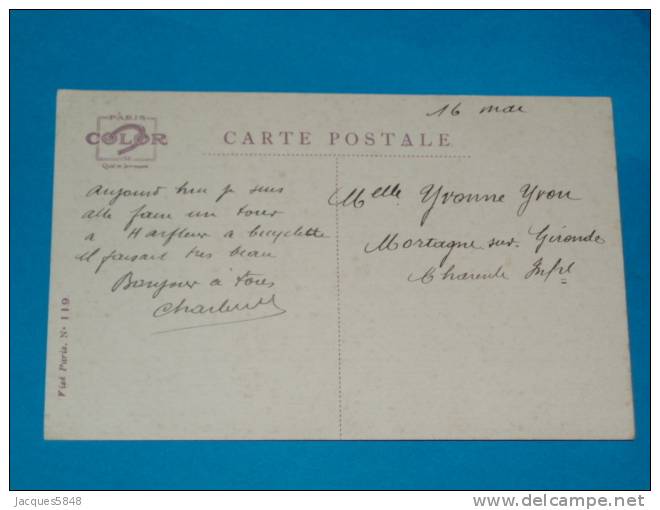 16 mai
PARIS
COLOR
CARTE POSTALE
Aujourd hui je suis
allé faire un tour
a Harfleur a bicyclette
il faisait tres beau
Bonjour à tous
Melle Yvonne Yvon
Mortagne sur Gironde
Charente Infre
Visé Paris. N° 119
Jacques5848
delcampe.net